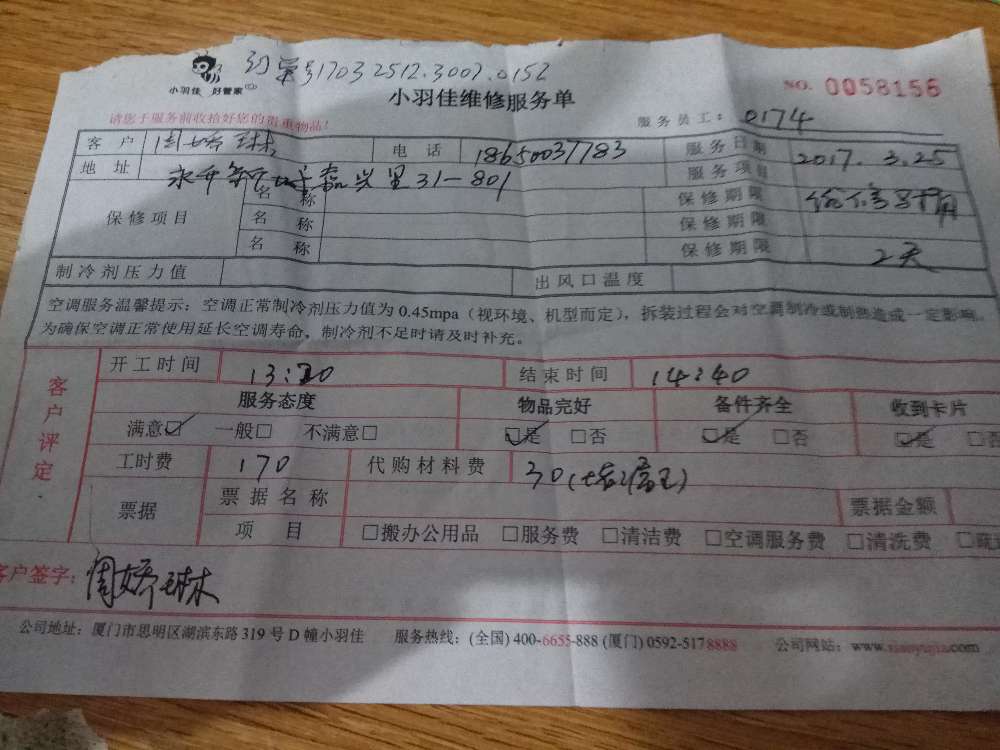 订单号170325123007.0152
小羽佳 好管家
小羽佳维修服务单
NO. 0058156
请您于服务前收拾好您的贵重物品!
服务员工: 0174
客户 周娇琳 电话 18650037783 服务日期 2017.3.25
地址 嘉兴里31-801 服务项目
保修项目 名称 保修期限
名称 保修期限
名称 保修期限 2天
制冷剂压力值 出风口温度
空调服务温馨提示:空调正常制冷剂压力值为0.45mpa(视环境、机型而定),拆装过程会对空调制冷或制热造成一定影响。
为确保空调正常使用延长空调寿命,制冷剂不足时请及时补充。
客户评定
开工时间 13:20 结束时间 14:40
服务态度 物品完好 备件齐全 收到卡片
满意☑ 一般□ 不满意□ ☑是 □否 ☑是 □否 ☑是 □否
工时费 170 代购材料费 30
票据 票据名称 票据金额
项目 □搬办公用品 □服务费 □清洁费 □空调服务费 □清洗费 □疏
客户签字: 周娇琳
公司地址:厦门市思明区湖滨东路319号D幢小羽佳 服务热线:(全国)400-6655-888 (厦门)0592-5178888 公司网站:www.xiaoyujia.com